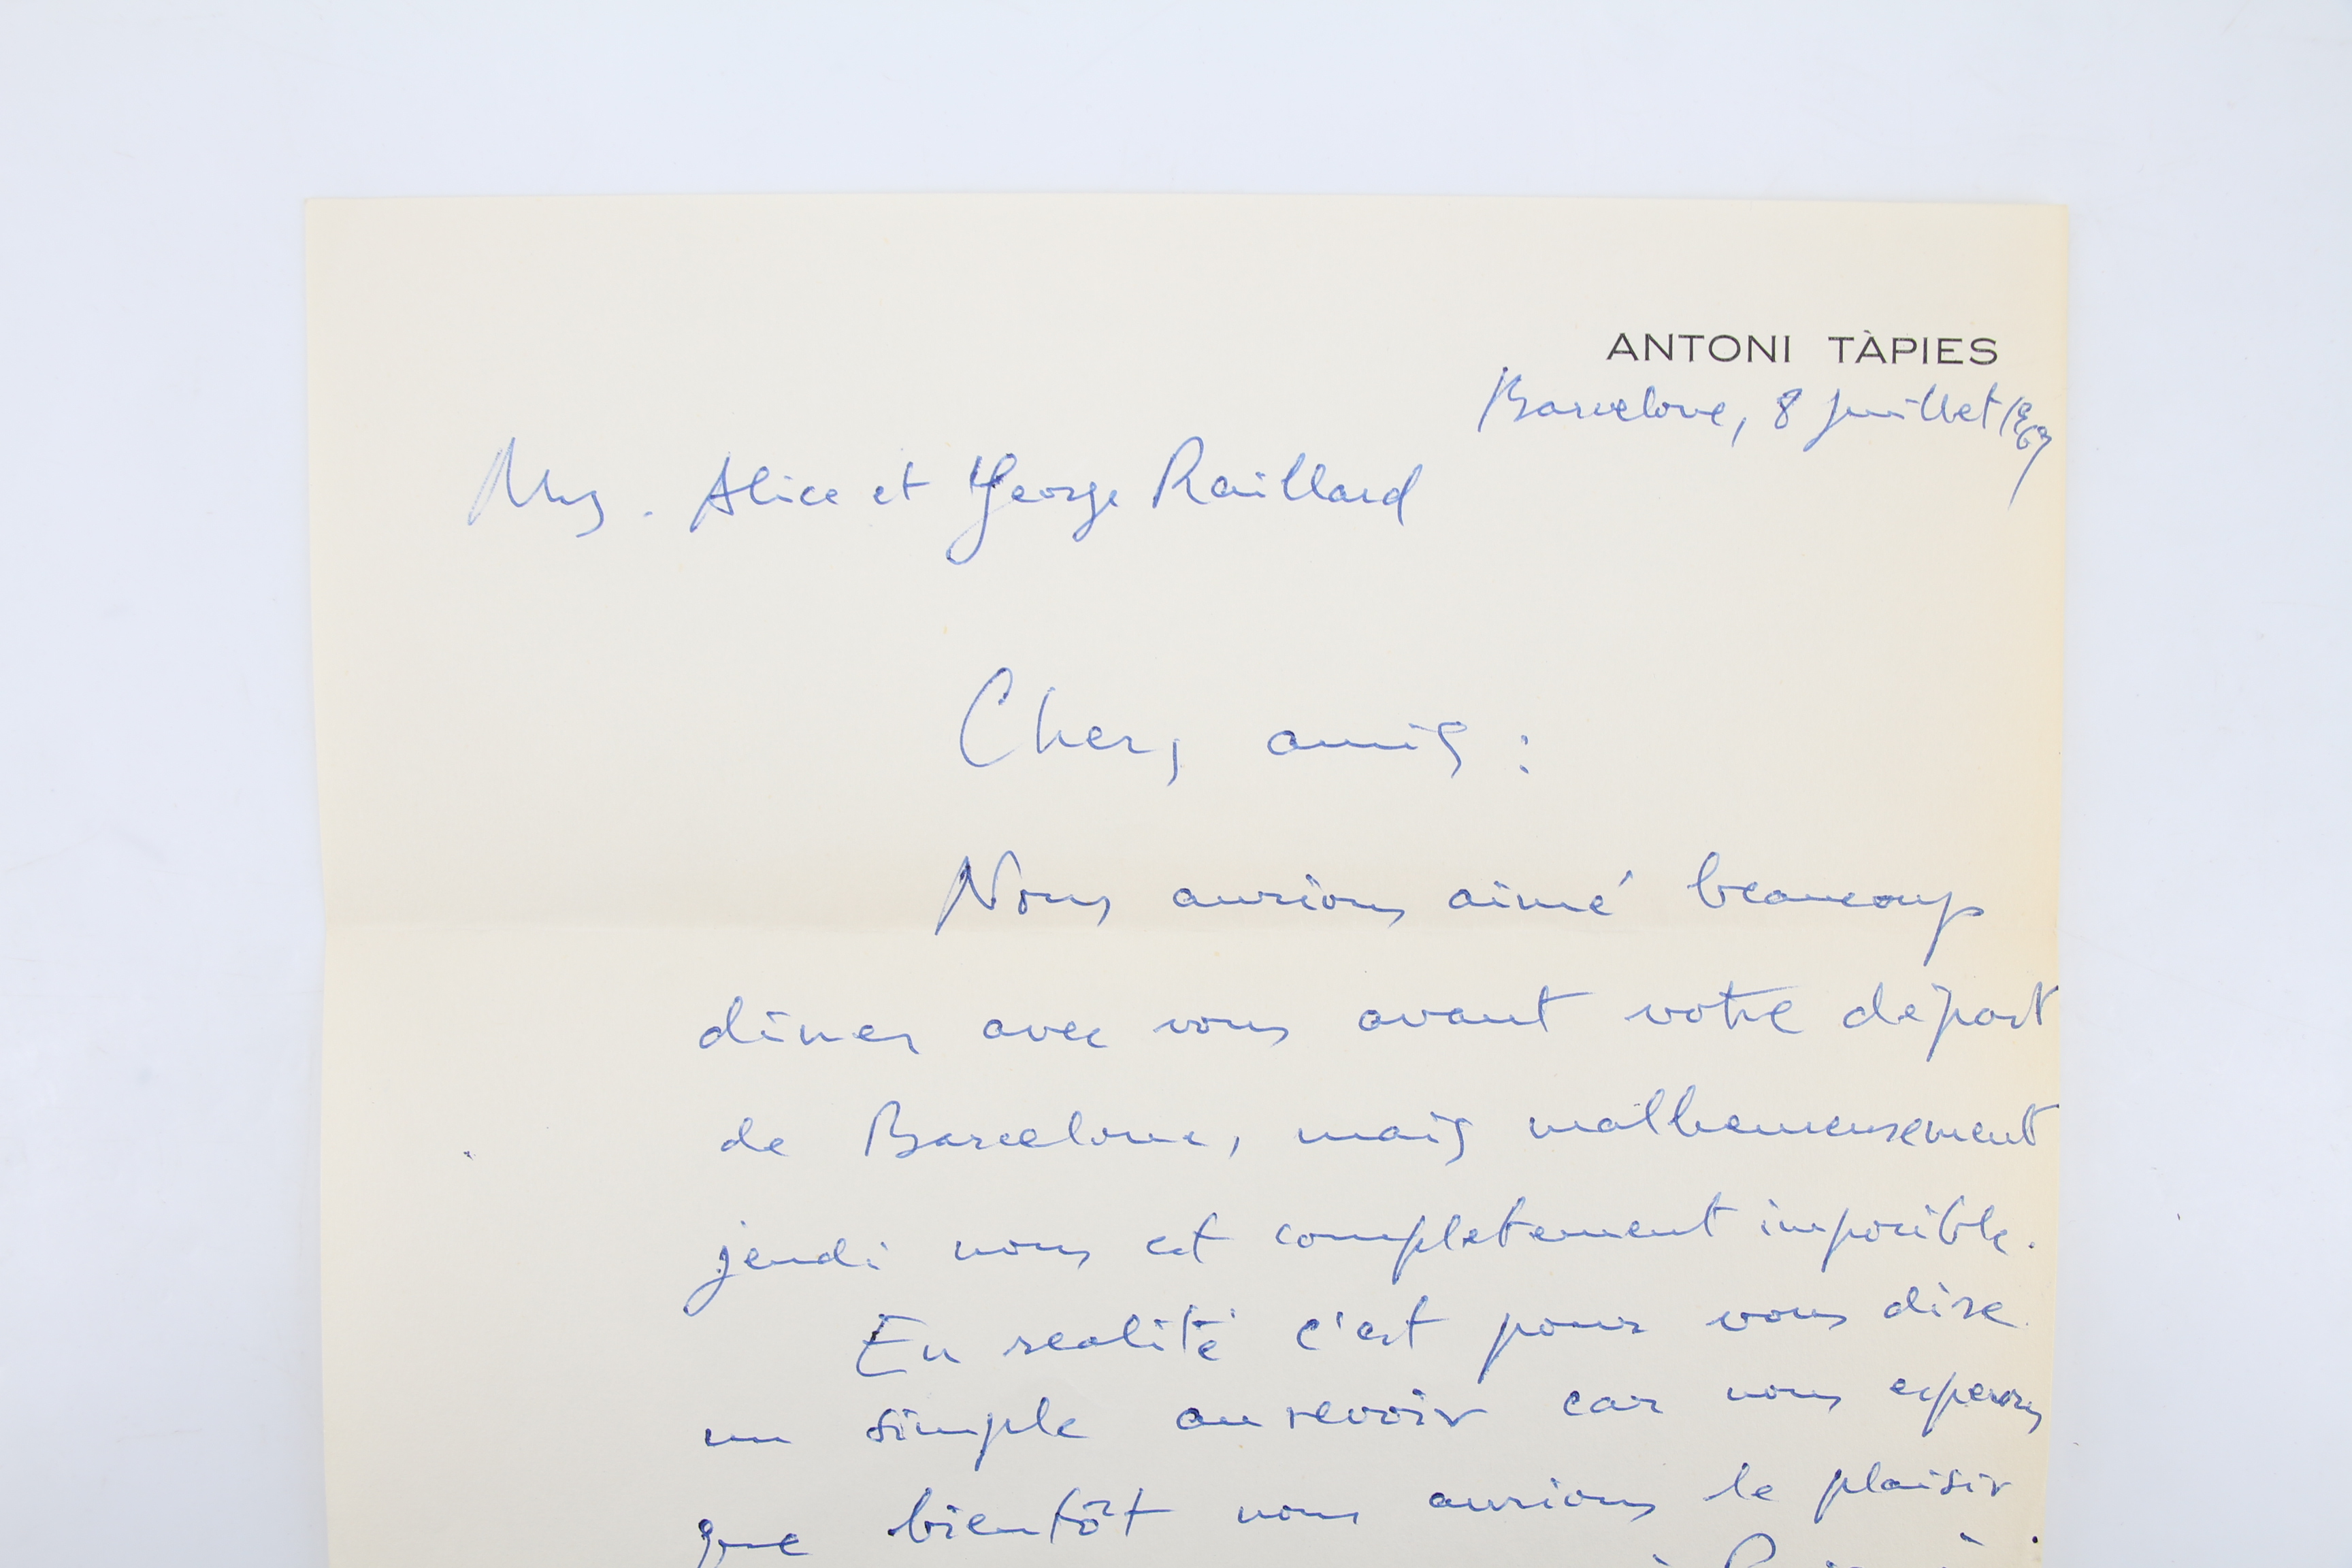 ANTONI TÀPIES
Barcelone, 8 juillet 1969
Mrs. Alice et George Raillard
Chers amis :
Nous aurions aimé beaucoup
dîner avec vous avant votre départ
de Barcelone, mais malheureusement
jeudi nous est completement imposible.
En realité c'est pour vous dire
un simple au revoir car nous esperons
que bientôt nous aurions le plaisir